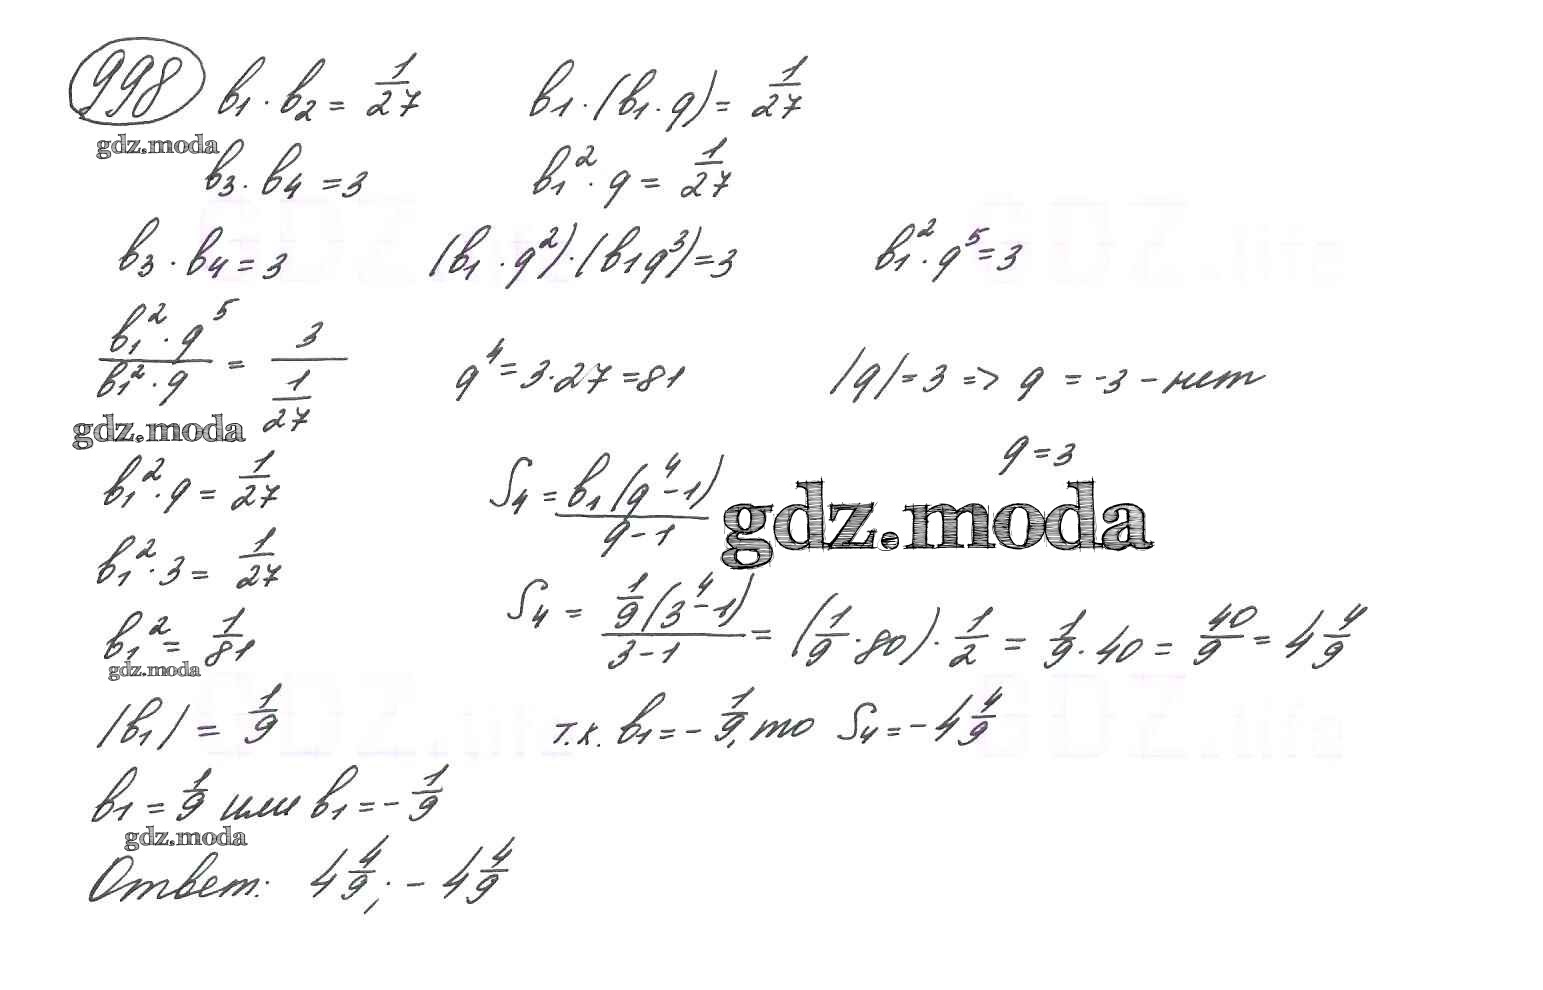 998 b₁ · b₂ = 1/27   b₁ · (b₁ · q) = 1/27
gdz.moda
b₃ · b₄ = 3   b₁² · q = 1/27
b₃ · b₄ = 3   (b₁ · q²) · (b₁q³) = 3   b₁² · q⁵ = 3
(b₁² · q⁵)/(b₁² · q) = 3/(1/27)   q⁴ = 3 · 27 = 81   |q| = 3 => q = -3 - нет
gdz.moda
q = 3
b₁² · q = 1/27   S₄ = b₁(q⁴ - 1)/(q - 1)
gdz.moda
b₁² · 3 = 1/27
b₁² = 1/81   S₄ = (1/9(3⁴ - 1))/(3 - 1) = (1/9 · 80) · 1/2 = 1/9 · 40 = 40/9 = 4 4/9
gdz.moda
|b₁| = 1/9   т.к. b₁ = - 1/9, то S₄ = - 4 4/9
b₁ = 1/9 или b₁ = - 1/9
gdz.moda
Ответ: 4 4/9; - 4 4/9